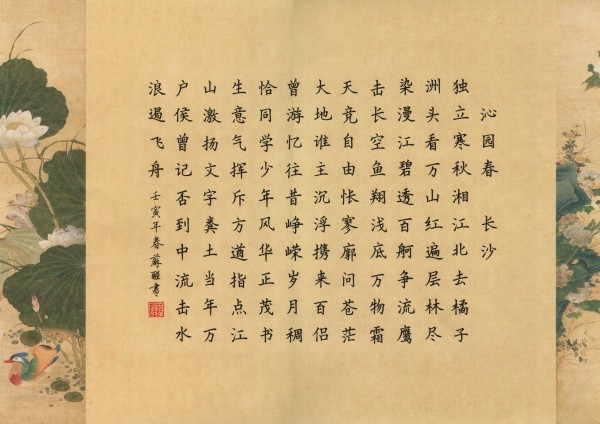 沁园春 长沙
独立寒秋湘江北去橘子
洲头看万山红遍层林尽
染漫江碧透百舸争流鹰
击长空鱼翔浅底万物霜
天竞自由怅寥廓问苍茫
大地谁主沉浮携来百侣
曾游忆往昔峥嵘岁月稠
恰同学少年风华正茂书
生意气挥斥方遒指点江
山激扬文字粪土当年万
户侯曾记否到中流击水
浪遏飞舟 壬寅年春蘇醒書